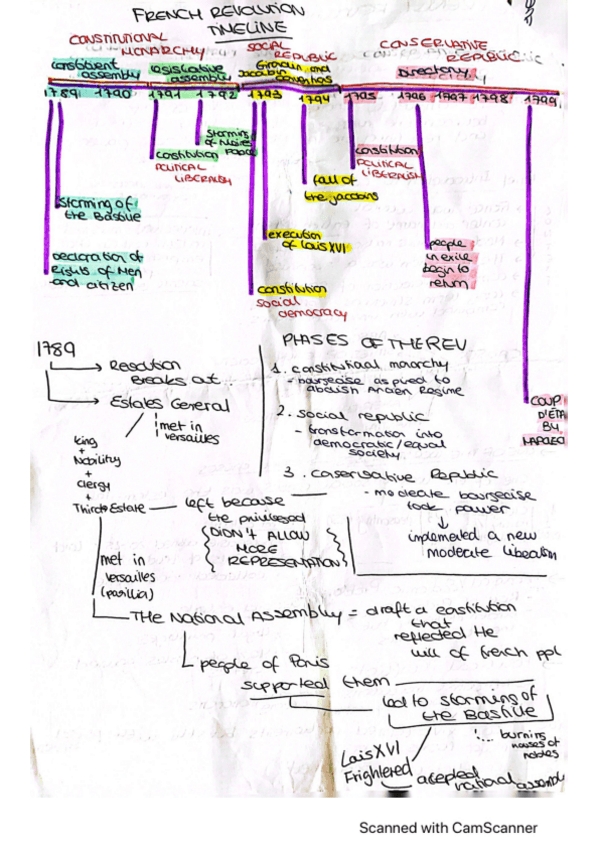 FRENCH REVOLUTION
TIMELINE
CONSTITUTIONAL
MONARCHY
SOCIAL
REPUBLIC
CONSERVATIVE
REPUBLIC
constituent
assembly
legislative
assembly
Girondin and
Jacobin
convention
Directory
1789 1790 1791 1792 1793 1794 1795 1796 1797 1798 1799
Storming
of
constitution
POLITICAL
LIBERALISM
constitution
POLITICAL
LIBERALISM
fall of
the jacobins
Storming of
the Bastille
execution
of Louis XVI
people
in exile
begin to
return
Declaration of
Rights of Men
and citizen
constitution
social
democracy
COUP
D'ETA
BY
NAPOLEO
1789
Revolution
Breaks out
Estates General
met in
versailles
king
+
Nobility
+
clergy
+
Third Estate
left because
the privileged
DIDN'T ALLOW
MORE
REPRESENTATION
met in
versailles
PHASES OF THE REV
1. constitutional monarchy
- bourgeoise aspired to
abolish Ancien Regime
2. social republic
- transformation into
democratic/equal
society
3. conservative Republic
- moderate bourgeoise
took power
implemented a new
moderate liberalism
THE National Assembly = draft a constitution
that
reflected the
will of french ppl
people of Paris
supported them
led to storming of
the Bastille
burning
houses of
nobles
Louis XVI
Frightened
accepted
national assembly
Scanned with CamScanner